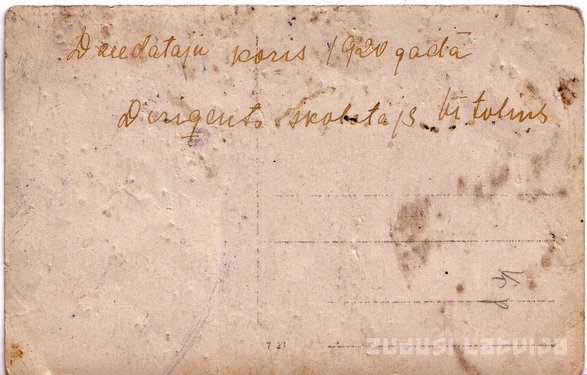 Dziedataju koris 1920 gadā
Dirigents skolotajs Vitolins
7 23
zudusi latvija